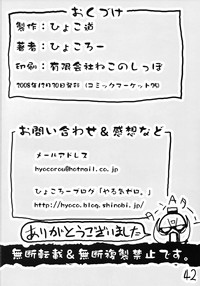 おくづけ
製作：ひょこ道
著者：ひょころー
印刷：有限会社ねこのしっぽ
2008年12月30日発行（コミックマーケット75）
お問い合わせ＆感想など
メールアドレス
hyocorou@hotmail.co.jp
ひょころーブログ「やる気ゼロ。」
http://hyoco.blog.shinobi.jp/
ありがとうございました
無断転載＆無断複製禁止です。
42